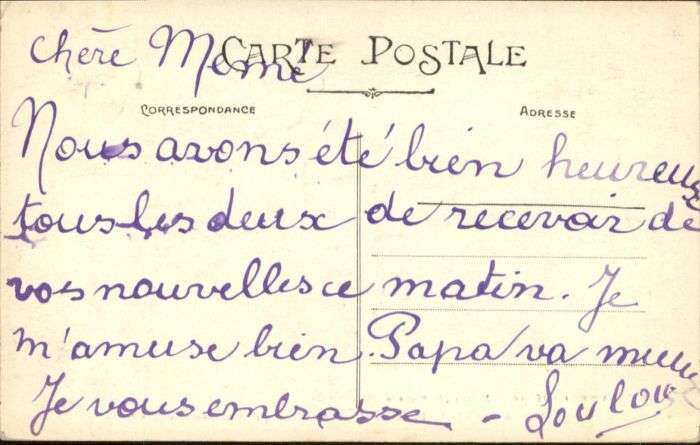 CARTE POSTALE
Chère Mémé
CORRESPONDANCE
ADRESSE
Nous avons été bien heureux
tous les deux de recevoir de
vos nouvelles ce matin. Je
m'amuse bien. Papa va mieux
Je vous embrasse - Loulou